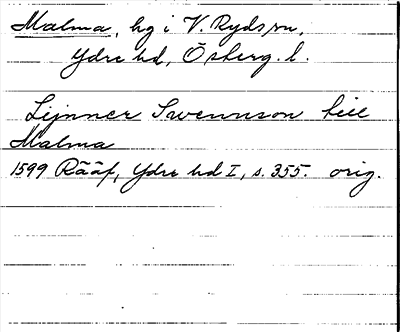 Malma, hg i V. Ryds sn,
Ydre hd, Österg. l.
Lijnner Swennson till
Malma
1599 Rääf, Ydre hd I, s. 355. orig.